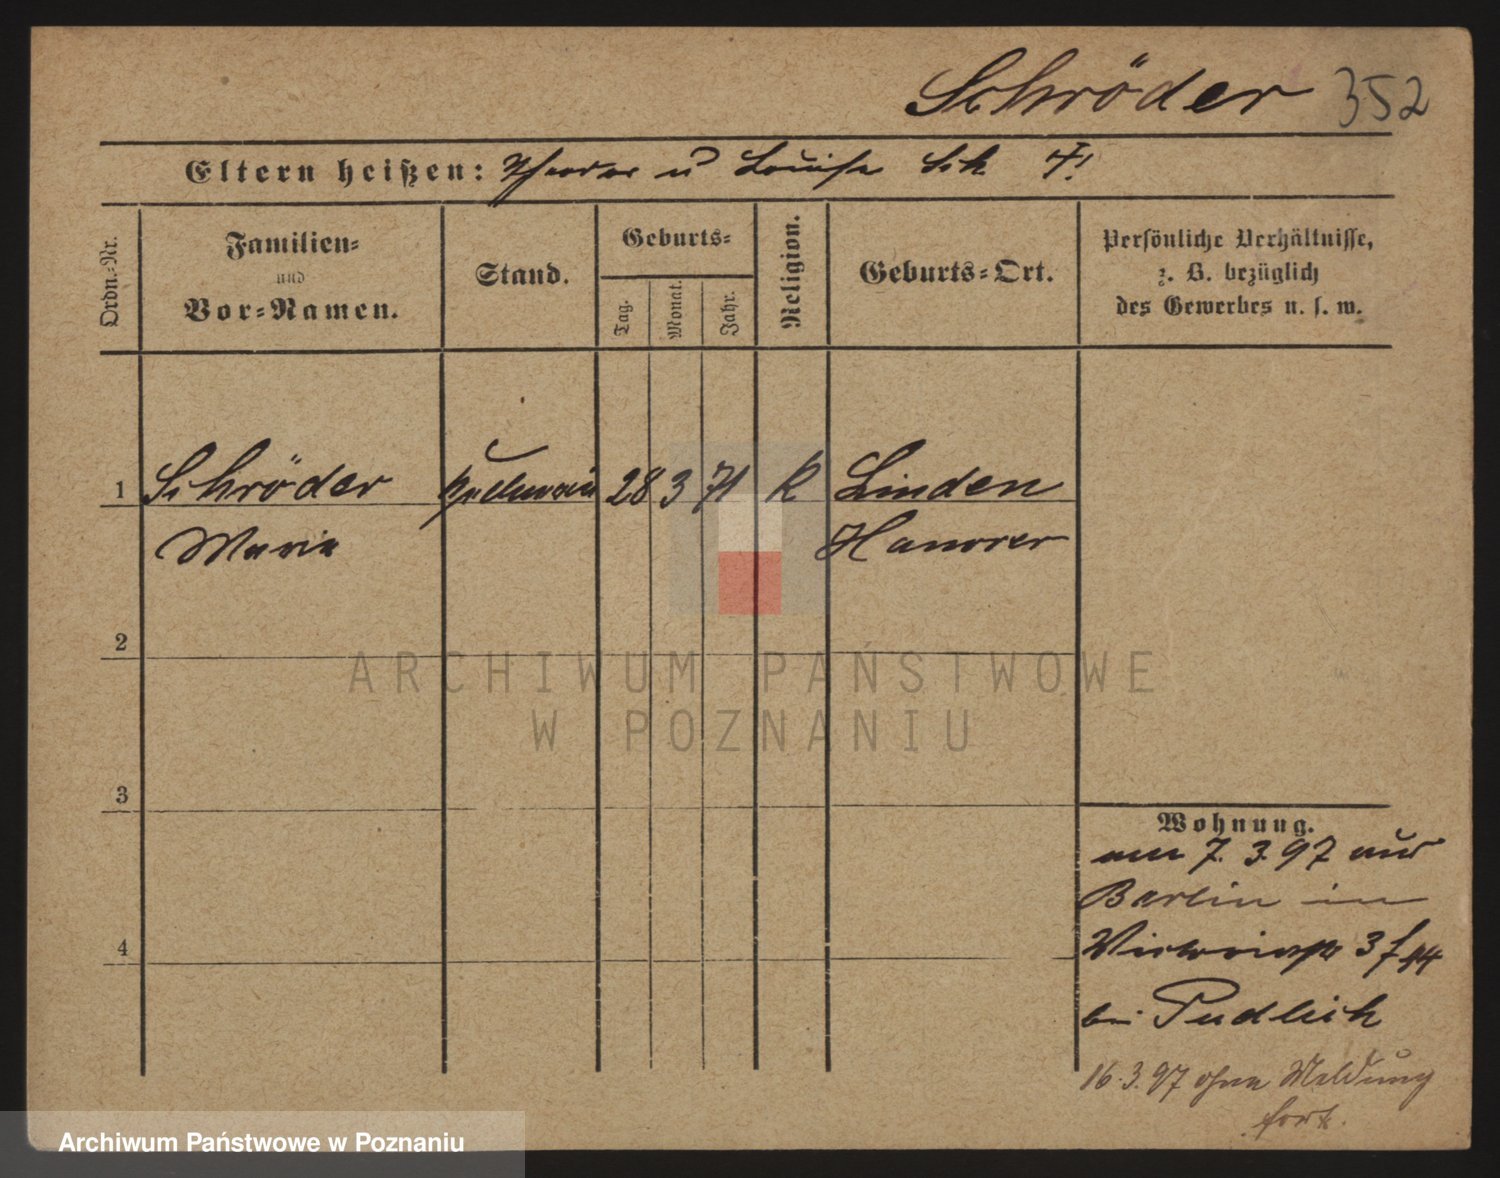 Schröder 352
Eltern heißen: Theodor u Louise Sch †!
Ordn.=Nr.
Familien=
und
Vor=Namen.
Stand.
Geburts=
Tag.
Monat.
Jahr.
Religion.
Geburts=Ort.
Persönliche Verhältnisse,
z. B. bezüglich
des Gewerbes u. s. w.
1 Schröder 28 3 71 k Linden
Maria Hanover
2
ARCHIWUM PAŃSTWOWE
W POZNANIU
3
Wohnung.
am 7. 3. 97 aus
Berlin in
Victoriastr 3
4
bei Pudlich
16.3.97 ohne Meldung
fort.
Archiwum Państwowe w Poznaniu